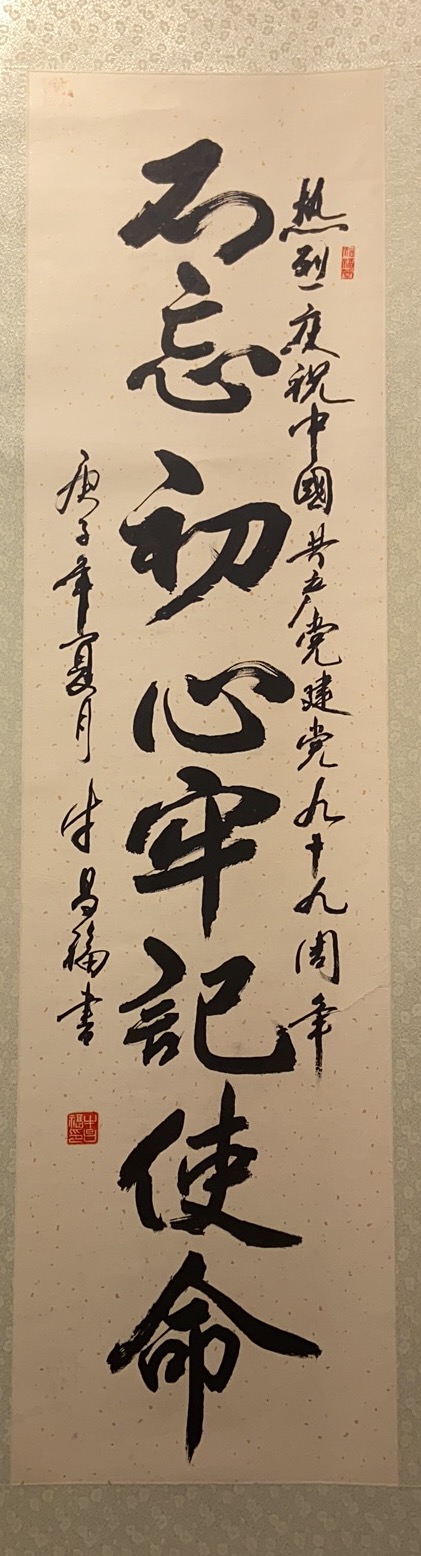 热烈庆祝中國共产党建党九十九周年
不忘初心牢記使命
庚子年夏月牛昌福書